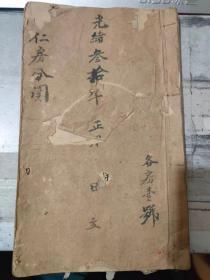 各房壹號
光緒叁拾年正月 日 立
仁房分關